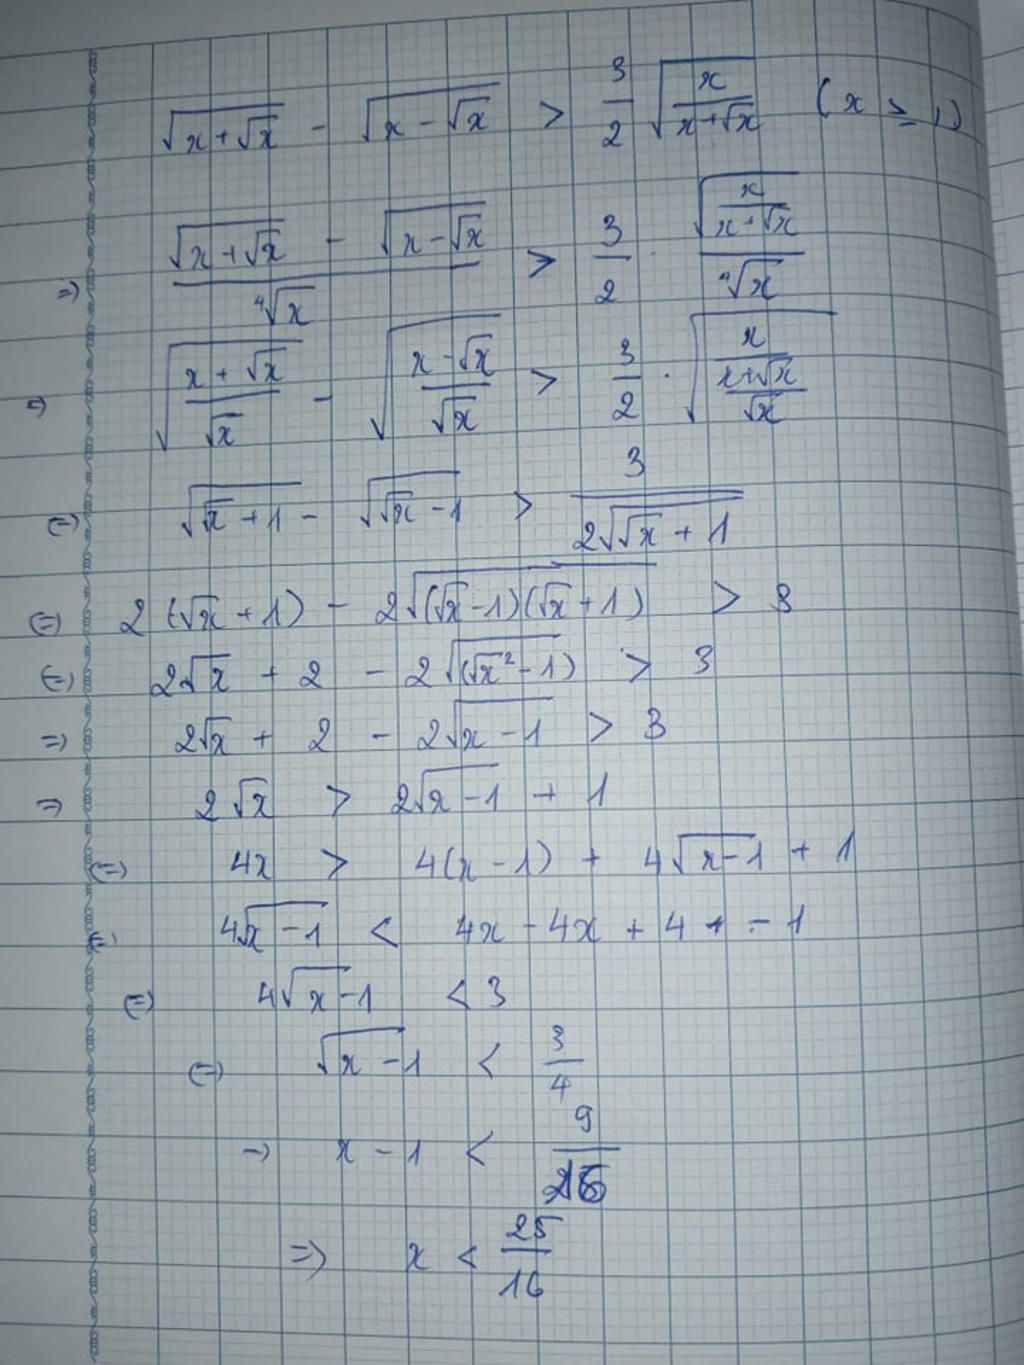 √(x+√x) - √(x-√x) > 3/2 √(x/(x+√x)) (x ≥ 1)
=> (√(x+√x) - √(x-√x))/⁴√x > 3/2 · √(x/(x+√x))/⁴√x
=> √((x+√x)/√x) - √((x-√x)/√x) > 3/2 · √(x/((x+√x)/√x))
(=) √(√x+1) - √(√x-1) > 3/(2√(√x+1))
(=) 2(√x+1) - 2√((√x-1)(√x+1)) > 3
(=) 2√x + 2 - 2√(√x²-1) > 3
=> 2√x + 2 - 2√(x-1) > 3
=> 2√x > 2√(x-1) + 1
(=) 4x > 4(x-1) + 4√(x-1) + 1
(=) 4√(x-1) < 4x - 4x + 4 - 1
(=) 4√(x-1) < 3
(=) √(x-1) < 3/4
=> x - 1 < 9/16
=> x < 25/16